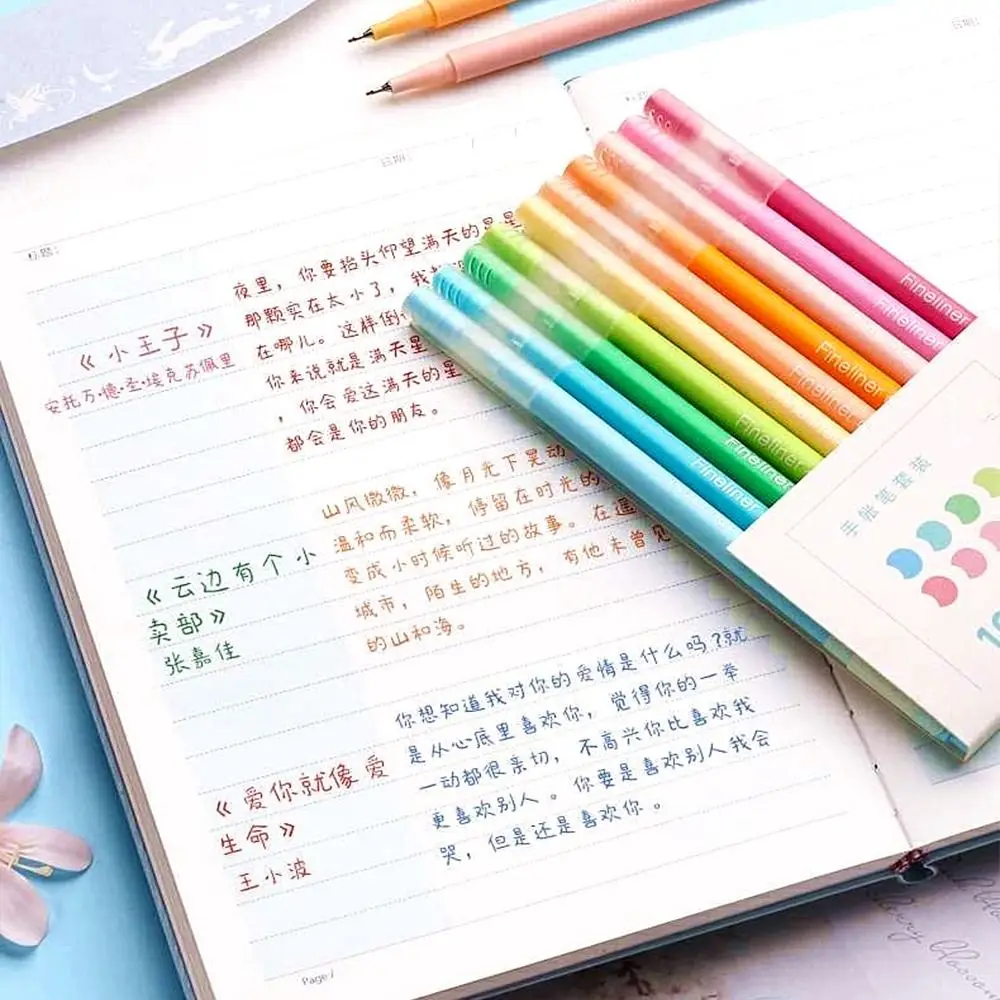 日期:
日期:
标题:
夜里，你要抬头仰望满天的星星
那颗实在太小了，我
在哪儿。这样倒
《小王子》
你来说就是满天星
安托万·德·圣·埃克苏佩里
，你会爱这满天的星
都会是你的朋友。
山风微微，像月光下晃动
温和而柔软，停留在时光的
变成小时候听过的故事。在遥
《云边有个小
城市，陌生的地方，有他未曾见
卖部》
的山和海。
张嘉佳
你想知道我对你的爱情是什么吗?就
是从心底里喜欢你，觉得你的一举
《爱你就像爱
一动都很亲切，不高兴你比喜欢我
生命》
更喜欢别人。你要是喜欢别人我会
王小波
哭，但是还是喜欢你。
Page /
Fineliner
Fineliner
Fineliner
Fineliner
Fineliner
Fineliner
Fineliner
Fineliner
手账笔套装